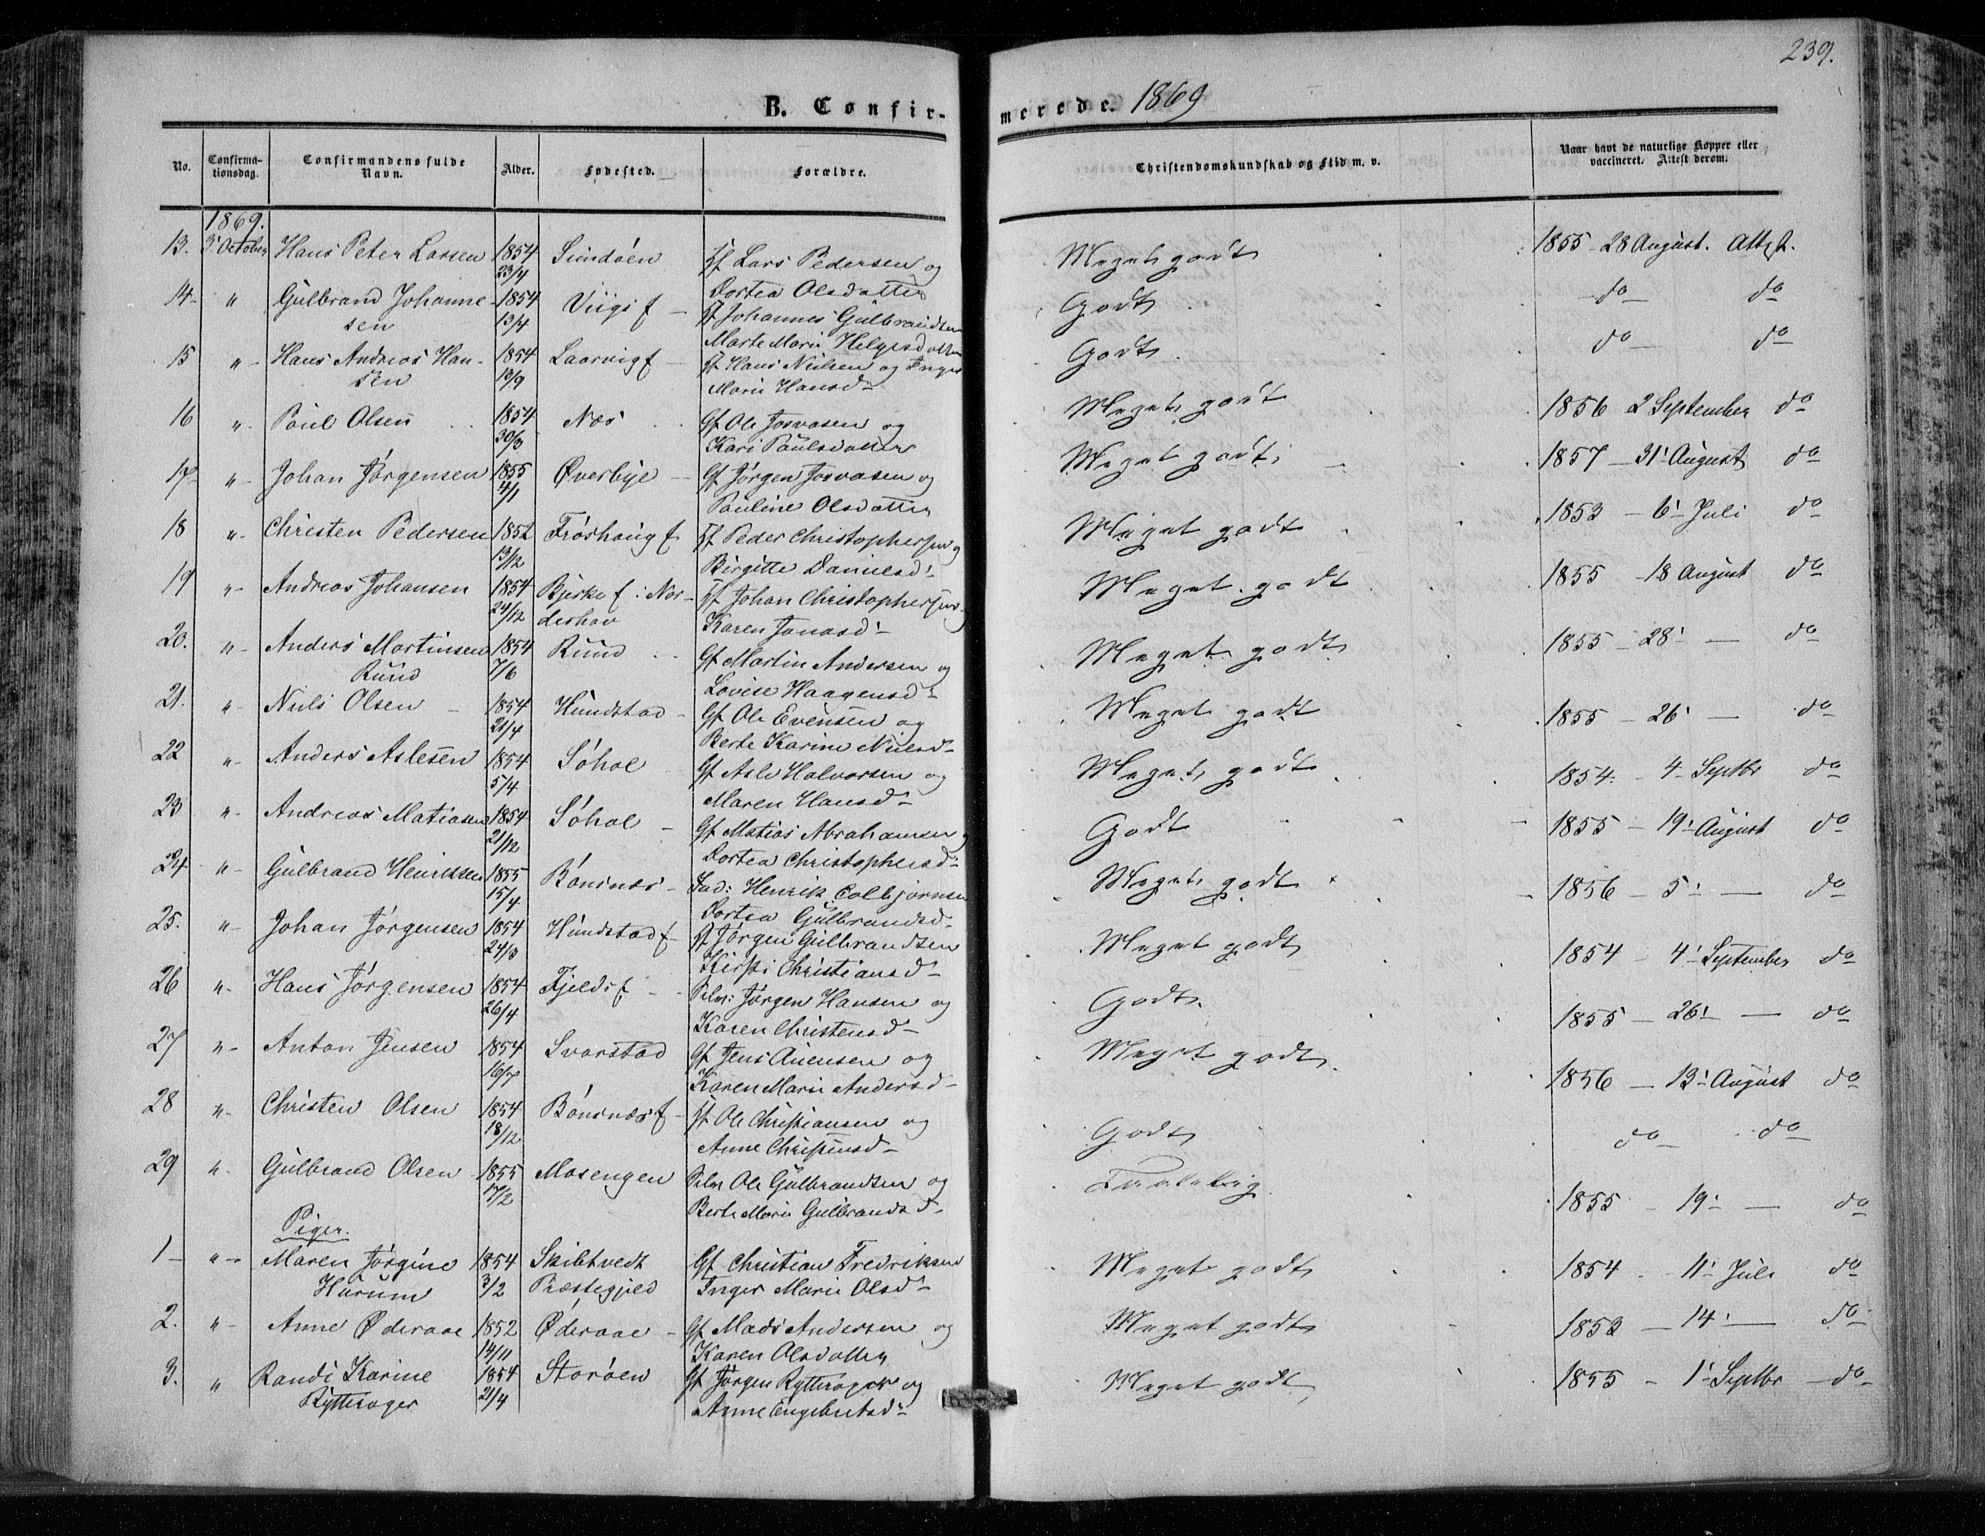 239.
B. Confirmerede. 1869
No. Confirmationsdag. Confirmandens fulde Navn. Alder. Fødested. Forældre. Christendomskundskab og Flid m. v. Naar havt de naturlige Kopper eller vaccineret. Attest derom.
1869.
13. 3' October Hans Peter Larsen 1854 23/4 Sundøen Hf Lars Pedersen og Dortea Olsdatter Meget godt 1855 28 August. Attest.
14 " Gulbrand Johannesen 1854 13/4 Viigs f Hf Johannes Gulbrandsen Marte Marie Helgesdatter Godt do do
15 " Hans Andreas Hansen 1854 13/9 Laarvig f Hf Hans Nilsen og Inger Marie Hansd- Godt do do
16 " Paul Olsen 1854 30/3 Næs Gf Ole Josvasen og Kari Paulsdatter Meget godt 1856 2 September do
17 " Johan Jørgensen 1855 4/1 Øverbye Gf Jørgen Josvasen og Pauline Olsdatter Meget godt 1857 31' August do
18 " Christen Pedersen 1852 13/12 Frøshaug f Hf Peder Christophersen og Birgitte Danielsd- Meget godt 1853 6' Juli do
19 " Andreas Johansen 1854 24/12 Bjerke f i Norderhov Hf Johan Christophersen og Karen Jonasd- Meget godt 1855 18 August do
20. " Anders Martinsen Ruud 1854 7/6 Ruud Gf Martin Andersen og Lovise Haagensd- Meget godt 1855 28' — do
21. " Niels Olsen 1854 21/4 Hundstad Gf Ole Evensen og Berte Karine Nielsd- Meget godt 1855 26' — do
22 " Anders Aslesen 1854 5/4 Søhol Gf Asle Halvorsen og Maren Hansd- Meget godt 1854 4 Septbr do
23 " Andreas Matiasen 1854 21/12 Søhol Gf Matias Abrahamsen og Dortea Christophersd- Godt 1855 19' August do
24 " Gulbrand Henriksen 1855 15/4 Bønsnæs Ind: Henrik Colbjørnsen Dortea Gulbrandsd- Meget godt 1856 5' — do
25. " Johan Jørgensen 1854 24/3 Hundstad f Hf Jørgen Gulbrandsen Kirsti Christiansd- Meget godt 1854 4' September do
26 " Hans Jørgensen 1854 26/4 Fjelds f Pelm: Jørgen Hansen og Karen Christensd- Godt 1855 26' — do
27 " Anton Jensen 1854 16/7 Svarstad Gf Jens Auensen og Karen Marie Andersd- Meget godt 1856 13' August do
28 " Christen Olsen 1854 18/12 Bønsnæs f Hf Ole Christiansen og Anne Christensd- Godt do do
29 " Gulbrand Olsen 1855 17/2 Mosengen Pelm Ole Gulbrandsen og Berte Marie Gulbrandsd- Taalelig 1855 19' — do
Piger.
1 " Maren Jørgine Hurum 1854 3/2 Skibtvedt Præstegjeld Gf Christian Fredriksen Inger Marie Olsd- Meget godt 1854 11' Juli do
2. " Anne Øderaae 1852 14/11 Øderaae Gf Mads Andersen og Karen Olsdatter Meget godt 1853 14' — do
3. " Randi Karine Rytterager 1854 21/4 Storøen Gf Jørgen Rytterager og Anne Engebretsd- Meget godt 1855 1' Septbr do